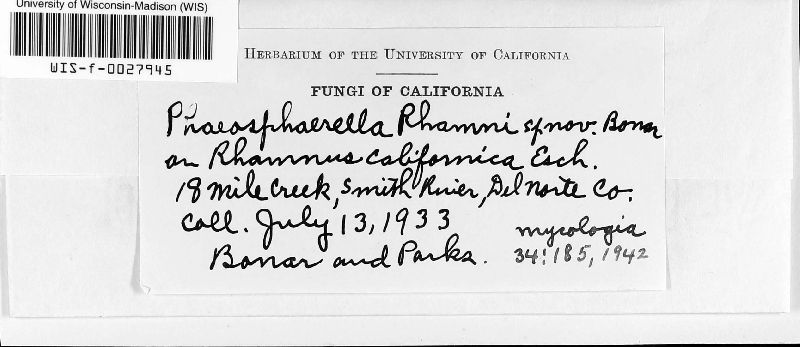 University of Wisconsin-Madison (WIS)
WIS-f-0027945
HERBARIUM OF THE UNIVERSITY OF CALIFORNIA
FUNGI OF CALIFORNIA
Phaeosphaerella Rhamni sp. nov. Bonar
on Rhamnus californica Esch.
18 mile Creek, Smith River, Del Norte Co.
Coll. July 13, 1933
Bonar and Parks.
mycologia
34:185, 1942